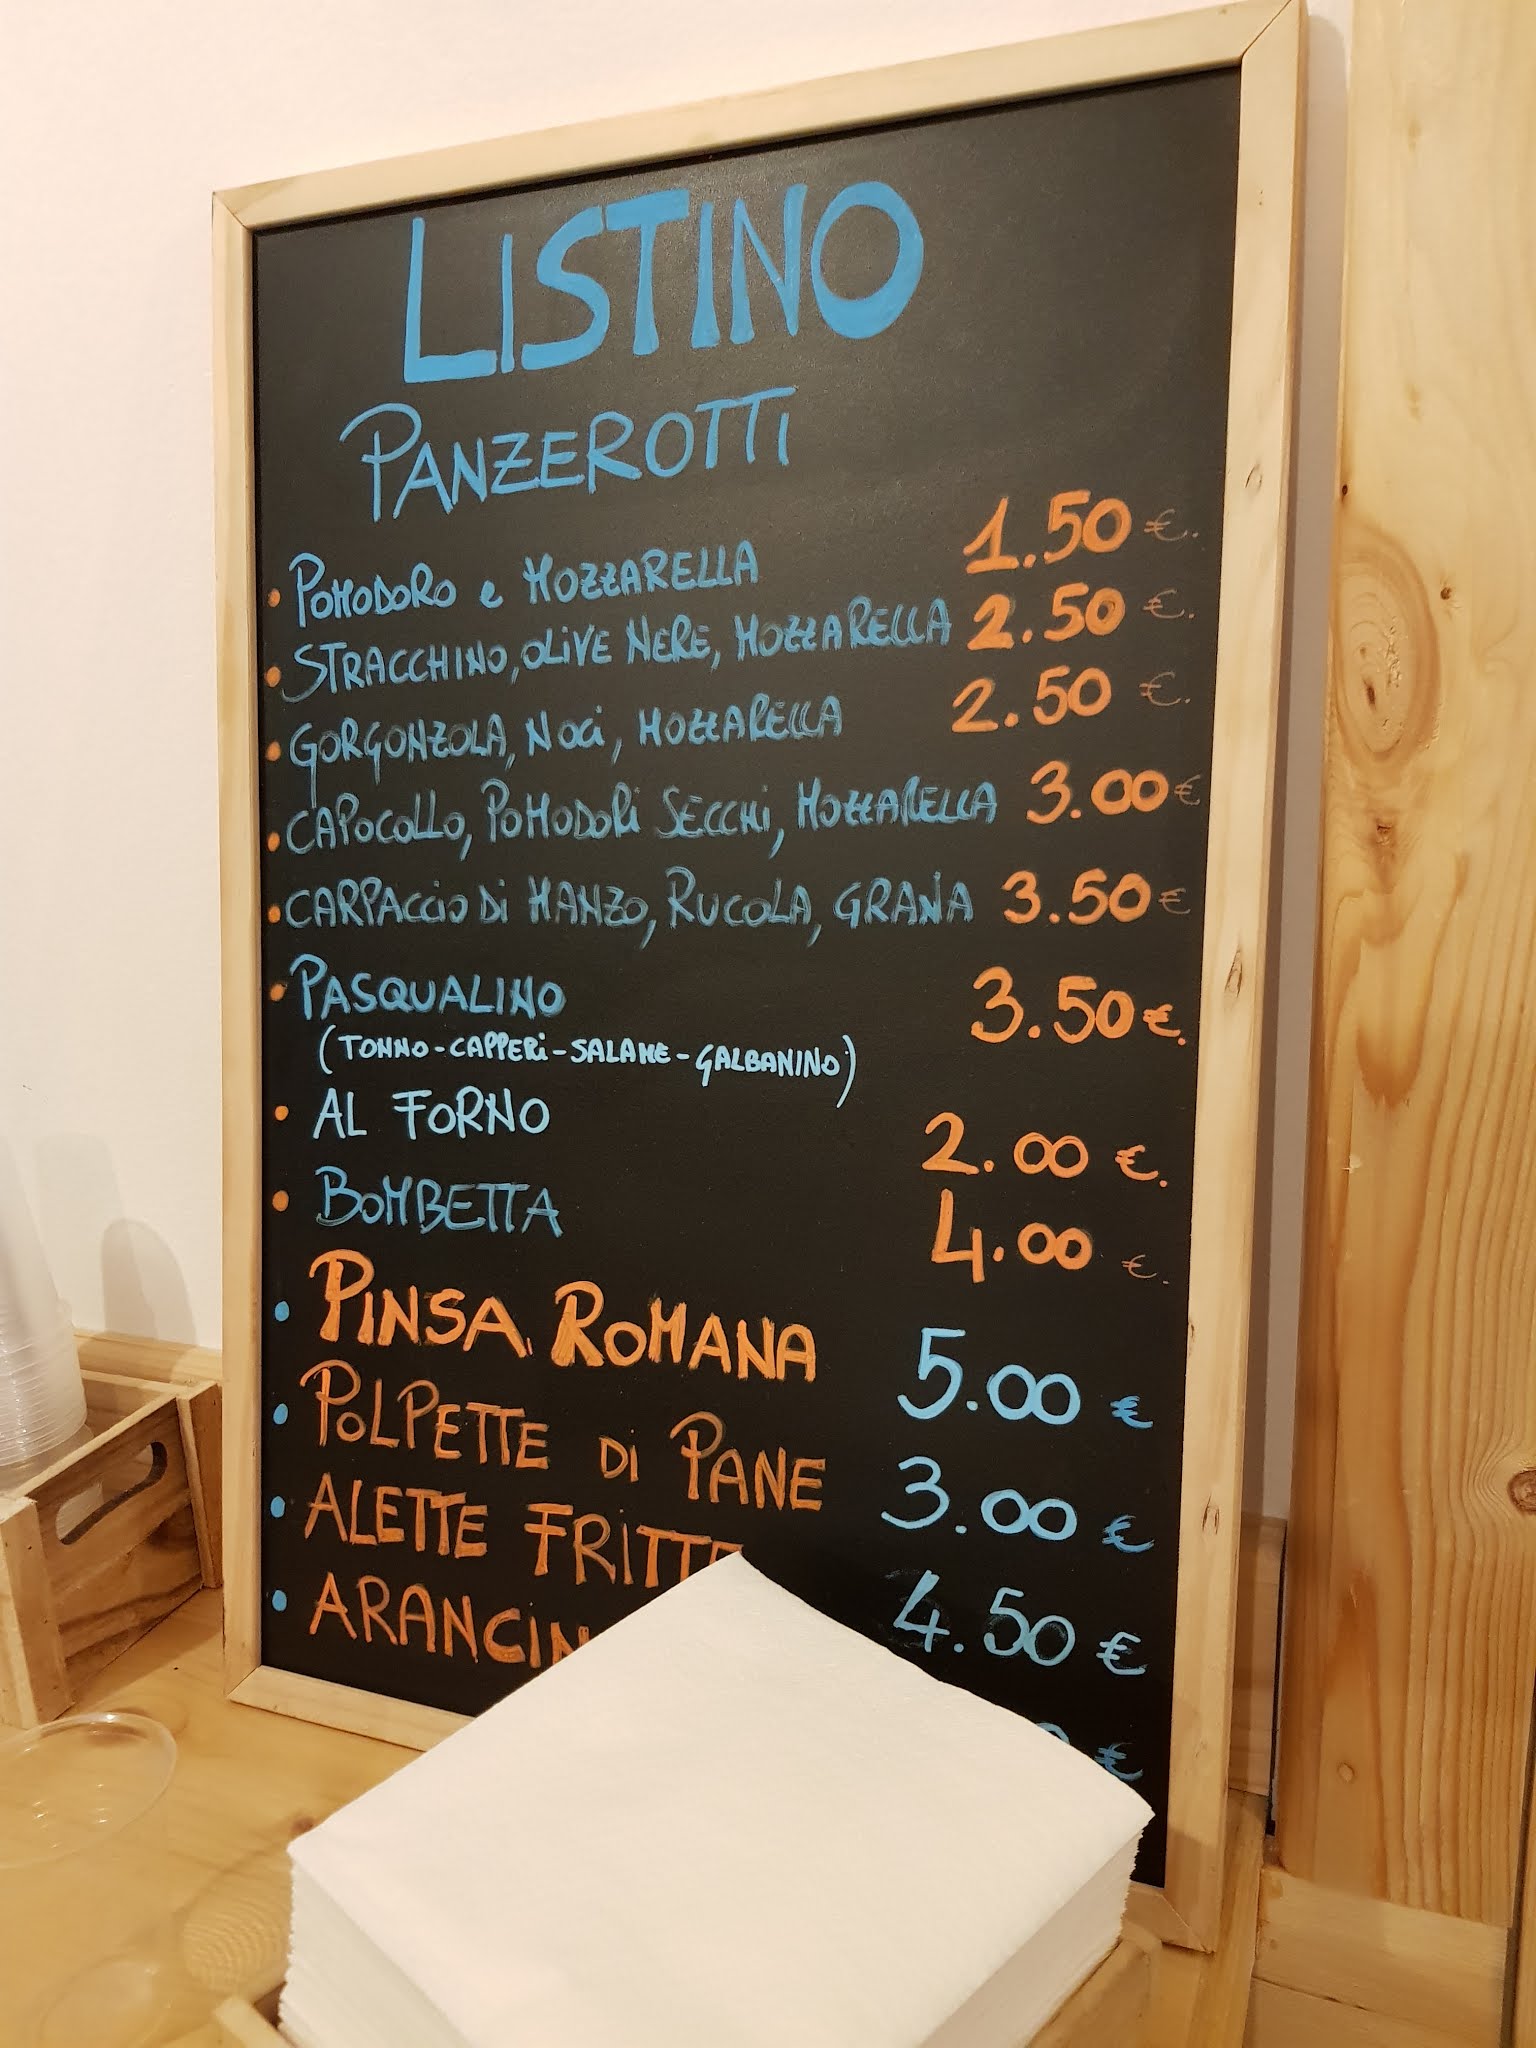 LISTINO
PANZEROTTI
• POMODORO e MOZZARELLA 1.50 €.
• STRACCHINO, OLIVE NERE, MOZZARELLA 2.50 €.
• GORGONZOLA, NOCI, MOZZARELLA 2.50 €.
• CAPOCOLLO, POMODORI SECCHI, MOZZARELLA 3.00 €
• CARPACCIO DI MANZO, RUCOLA, GRANA 3.50 €
• PASQUALINO 3.50 €.
(TONNO-CAPPERI-SALAME-GALBANINO)
• AL FORNO 2.00 €.
• BOMBETTA 4.00 €.
• PINSA ROMANA 5.00 €
• POLPETTE DI PANE 3.00 €
• ALETTE FRITTE 4.50 €
• ARANCIN €